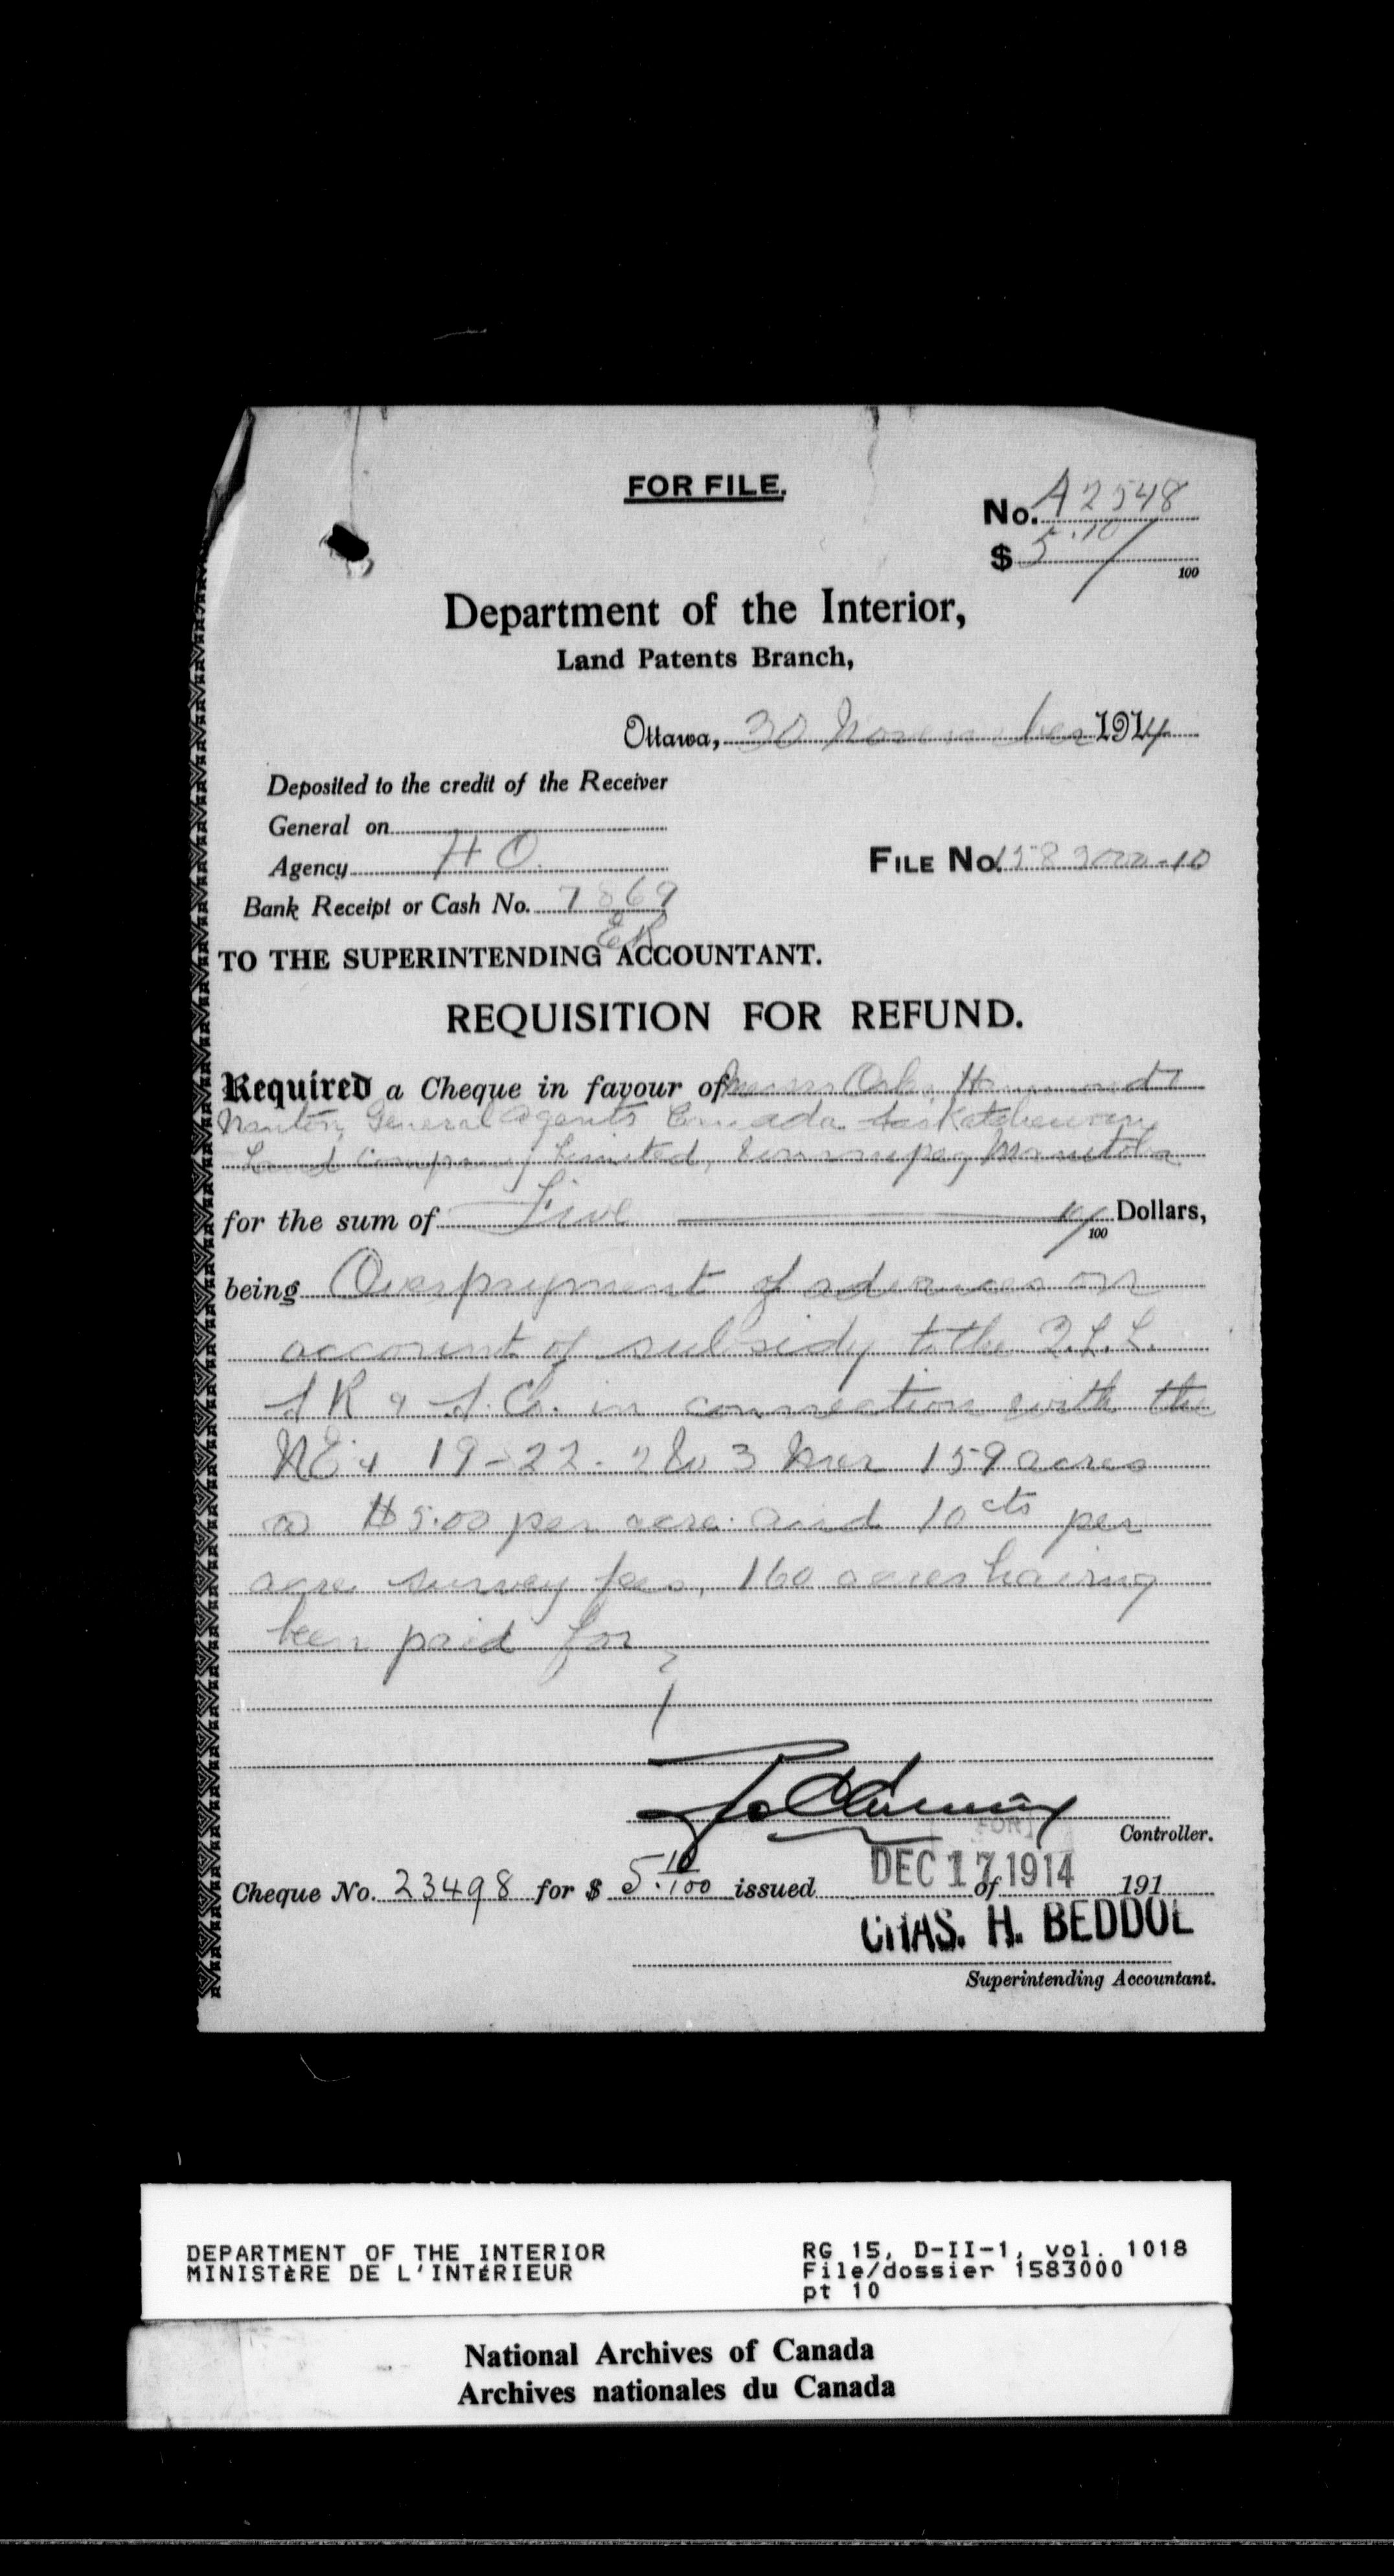 FOR FILE.
No. A2548
$ 5.10/100
Department of the Interior,
Land Patents Branch,
Ottawa, 30 November 1914
Deposited to the credit of the Receiver
General on
Agency H O.
FILE No. 1583000-10
Bank Receipt or Cash No. 7869
TO THE SUPERINTENDING ACCOUNTANT.
REQUISITION FOR REFUND.
Required a Cheque in favour of Messrs Osler, Hammond &
Nanton, General Agents Canada Saskatchewan
Land Company Limited, Winnipeg Manitoba
for the sum of Five 10/100 Dollars,
being Overpayment of advances on
account of subsidy to the Q.L.L.
S R & S. Co. in connection with the
NE 4 19-22-2 W 3 Mer 159 acres
@ $5.00 per acre and 10 cts per
acre survey fees, 160 acres having
been paid for
Controller.
Cheque No. 23498 for $ 5.10/100 issued DEC 17 1914 of 191
CHAS. H. BEDDOE
Superintending Accountant.
DEPARTMENT OF THE INTERIOR
MINISTÈRE DE L'INTÉRIEUR
RG 15, D-II-1, vol. 1018
File/dossier 1583000
pt 10
National Archives of Canada
Archives nationales du Canada